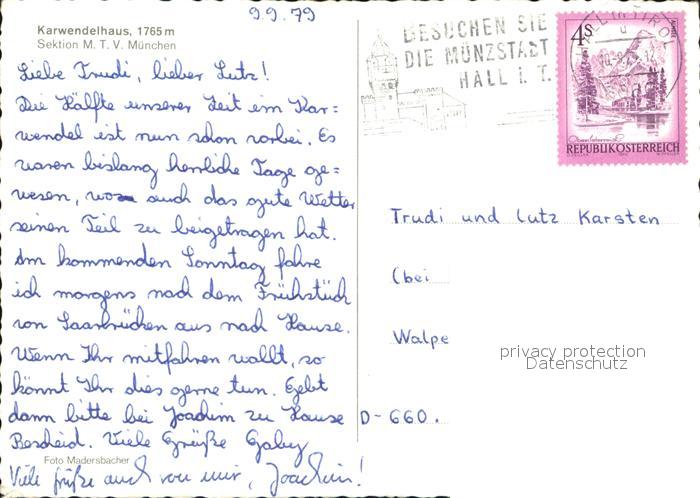 9.9.79
Karwendelhaus, 1765 m
Sektion M. T. V. München
Liebe Trudi, lieber Lutz!
Die Hälfte unserer Zeit im Kar=
wendel ist nun schon vorbei. Es
waren bislang herrliche Tage ge=
wesen, wozu auch das gute Wetter
seinen Teil zu beigetragen hat.
Am kommenden Sonntag fahre
ich morgens nach dem Frühstück
von Saarbrücken aus nach Hause.
Wenn Ihr mitfahren wollt, so
könnt Ihr dies gerne tun. Gebt
dann bitte bei Joachim zu Hause
Bescheid. Viele Grüße Gaby
Foto Madersbacher
Viele Grüße auch von mir, Joachim!
BESUCHEN SIE
DIE MÜNZSTADT
HALL I. T.
HALL IN TIROL
4 S
REPUBLIK ÖSTERREICH
Trudi und Lutz Karsten
(bei
Walpe
D-660.
privacy protection
Datenschutz